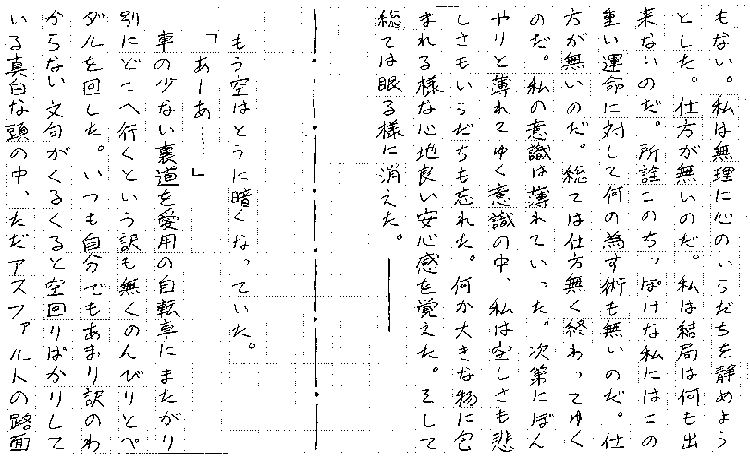 もない。私は無理に心のいらだちを静めよう
とした。仕方が無いのだ。私は結局は何も出
来ないのだ。所詮このちっぽけな私にはこの
重い運命に対して何の為す術も無いのだ。仕
方が無いのだ。総ては仕方無く終わってゆく
のだ。私の意識は薄れていった。次第にぼん
やりと薄れてゆく意識の中、私は空しさも悲
しさもいらだちも忘れた。何か大きな物に包
まれる様な心地良い安心感を覚えた。そして
総ては眠る様に消えた。――
もう空はとうに暗くなっていた。
「あーあ…」
車の少ない裏道を愛用の自転車にまたがり
別にどこへ行くという訳も無くのんびりとペ
ダルを回した。いつも自分でもあまり訳のわ
からない文句がくるくると空回りばかりして
いる真白な頭の中、ただアスファルトの路面